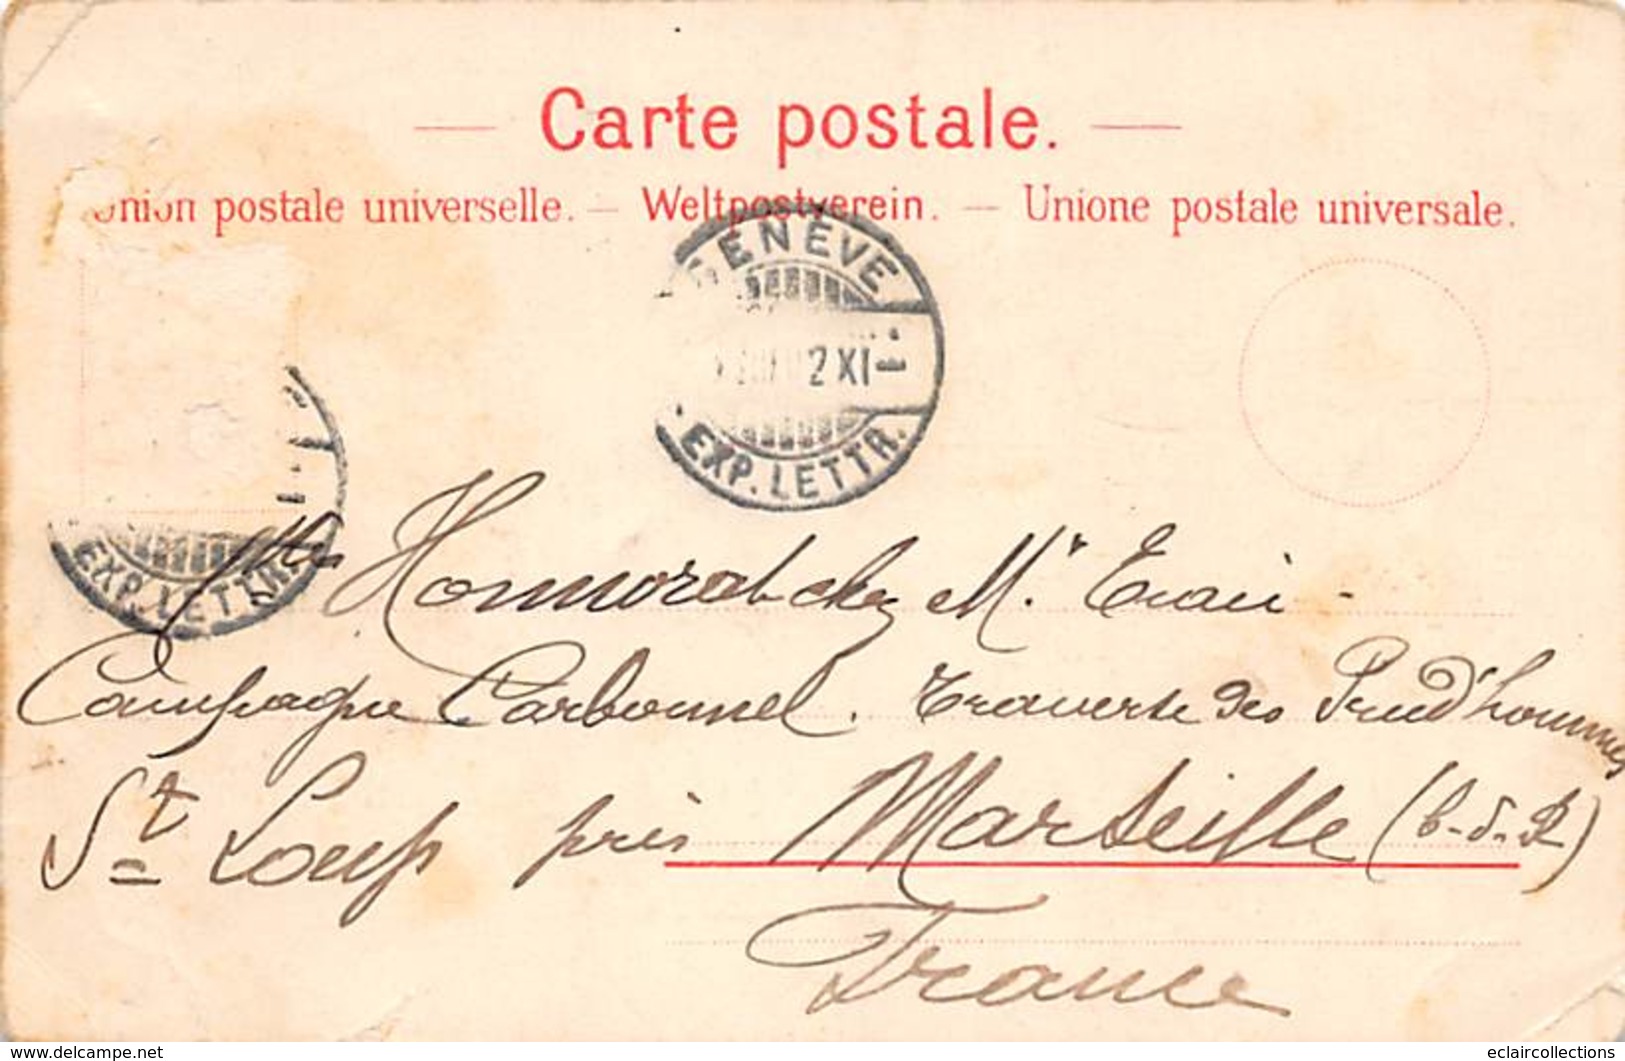 Carte postale.
Union postale universelle. — Weltpostverein. — Unione postale universale.
GENÈVE
2 XI
EXP. LETTR.
EXP. LETTR.
chez Mr.
Campagne Carbonnel. Traverse des Prud'hommes
St Loup près Marseille (B.-d.-R)
France
www.delcampe.net
eclaircollections